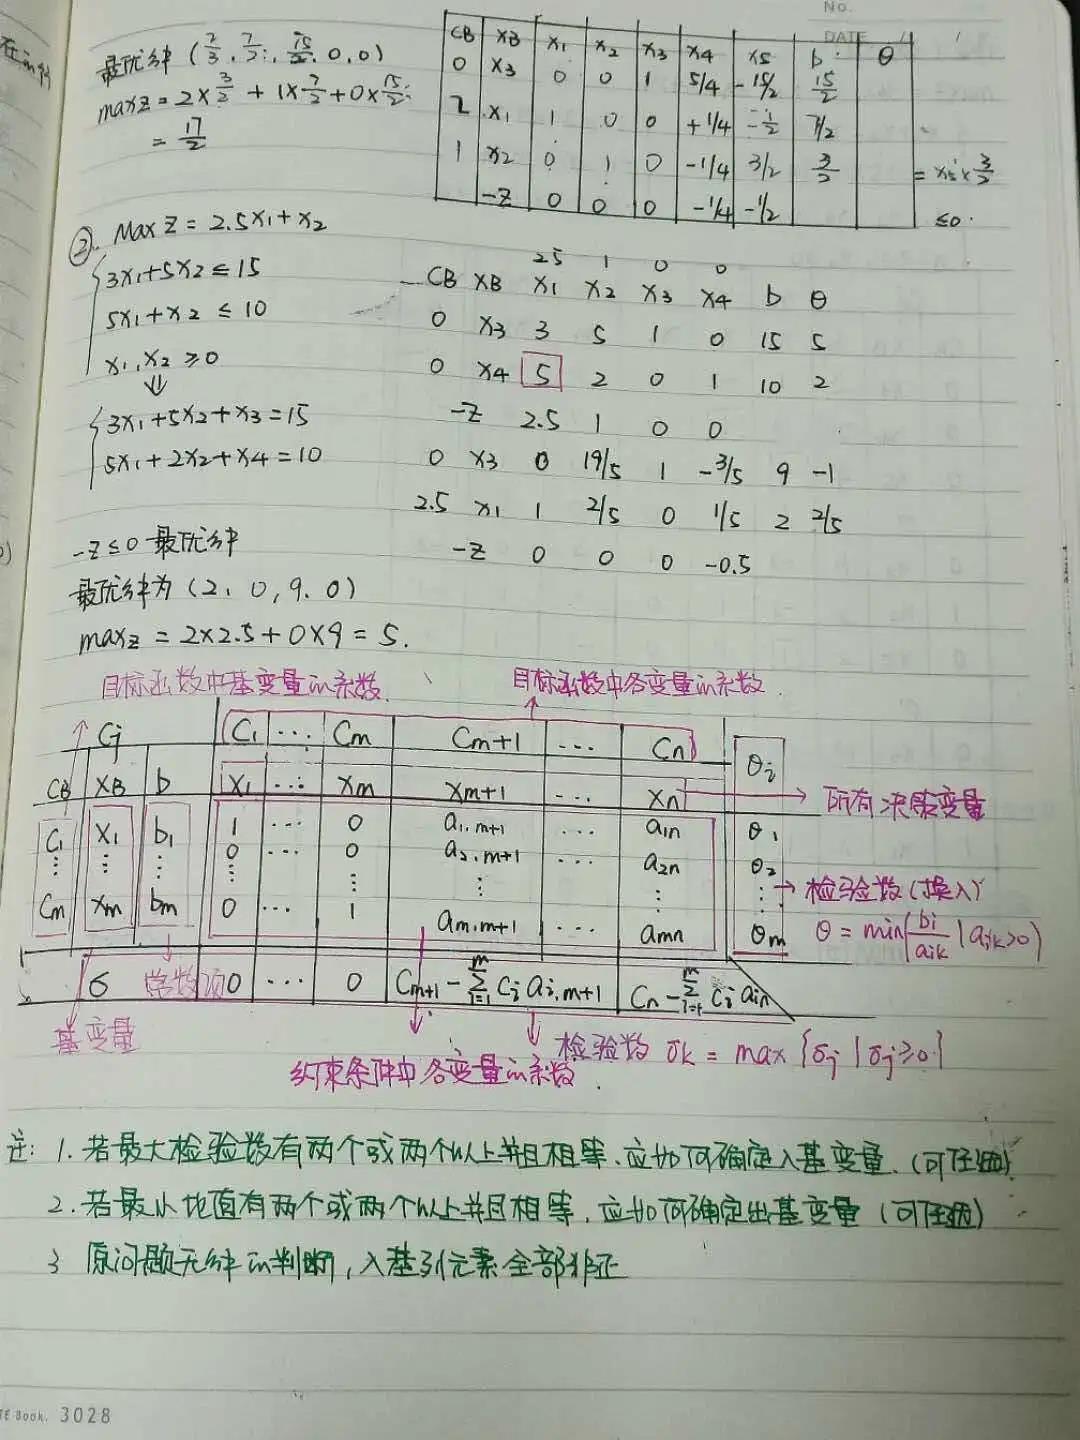 No.
DATE
最优解 (7/3, 7/2, 15/2, 0, 0)
maxz = 2×3/2 + 1×7/2 + 0×15/2
= 17/2
CB XB x1 x2 x3 x4 x5 b θ
0 x3 0 0 1 5/4 -15/2 15/2
2 x1 1 0 0 +1/4 -1/2 7/2
1 x2 0 1 0 -1/4 3/2 3/2
-Z 0 0 0 -1/4 -1/2
≤0.
②. Max Z = 2.5x1+x2
3x1+5x2≤15
5x1+x2≤10
x1,x2≥0
⇓
3x1+5x2+x3=15
5x1+2x2+x4=10
25 1 0 0
CB XB x1 x2 x3 x4 b θ
0 x3 3 5 1 0 15 5
0 x4 5 2 0 1 10 2
-Z 2.5 1 0 0
0 x3 0 19/5 1 -3/5 9 -1
2.5 x1 1 2/5 0 1/5 2 2/5
-Z 0 0 0 -0.5
-Z≤0 最优解
最优解为(2、0,9.0)
maxz = 2×2.5+0×9=5.
目标函数中基变量的系数
目标函数中各变量的系数
Cj C1 ... Cm Cm+1 ... Cn θi
CB XB b x1 ... xm xm+1 ... xn
所有决策变量
C1 x1 b1 1 ... 0 a1.m+1 ... a1n θ1
⋮ ⋮ ⋮ 0 ... 0 a2.m+1 ... a2n θ2
⋮ ⋮ ⋮ ⋮ ⋮
检验数(换入)
Cm xm bm 0 ... 1 am.m+1 ... amn θm
θ = min{bi/aik | aik>0}
σ 常数项 0 ... 0 Cm+1 - Σ(i=1→m) Ci ai,m+1 Cn - Σ(i=1→m) Ci ain
基变量
约束条件中各变量的系数
检验数 σk = max{σj | σj≥0}
注: 1. 若最大检验数有两个或两个以上并且相等、应如何确定入基变量.(可任选)
2. 若最小比值有两个或两个以上并且相等,应如何确定出基变量(可任选)
3 原问题无解的判断,入基列元素全部非正
TE Book. 3028